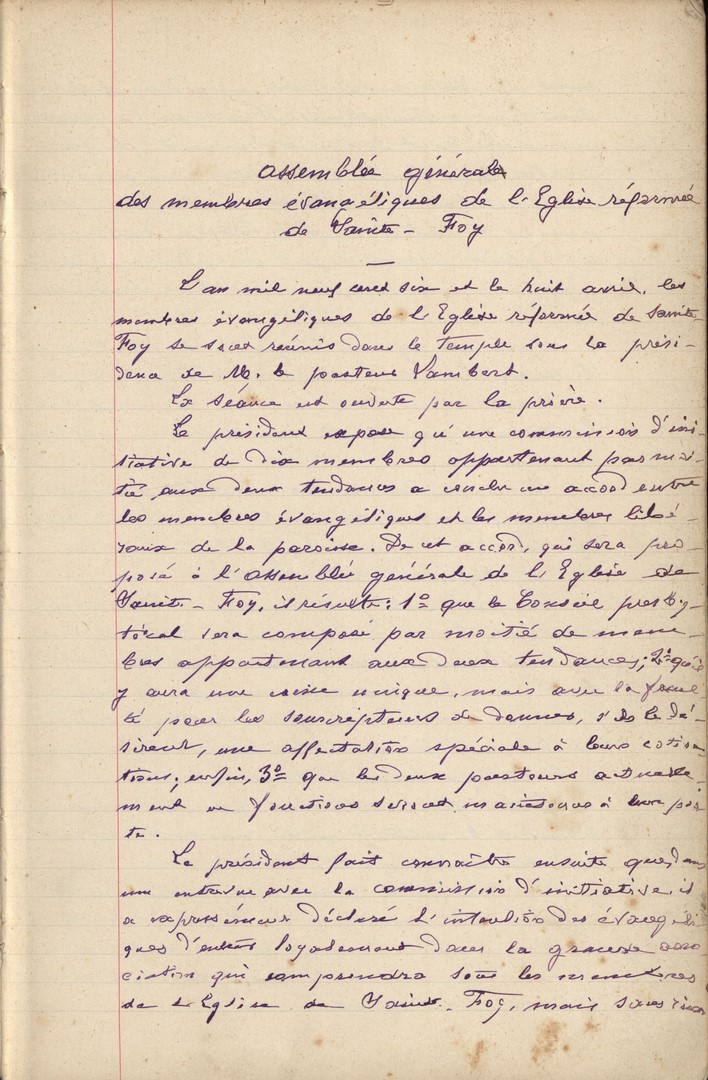 Assemblée générale
des membres évangéliques de l'Eglise réformée
de Sainte-Foy
L'an mil neuf cent six et le huit avril, les
membres évangéliques de l'Eglise réformée de Sainte-
Foy se sont réunis dans le temple sous la prési-
dence de M. le pasteur Lambert.
La séance est ouverte par la prière.
Le président expose qu'une commission d'ini-
tiative de dix membres appartenant par moi-
tié aux deux tendances a conclu un accord entre
les membres évangéliques et les membres libé-
raux de la paroisse. De cet accord, qui sera pro-
posé à l'assemblée générale de l'Eglise de
Sainte-Foy, il résulte: 1º que le Conseil presby-
téral sera composé par moitié de mem-
bres appartenant aux deux tendances; 2º qu'il
y aura une caisse unique, mais avec la facul-
té pour les souscripteurs de donner, s'ils le dé-
sirent, une affectation spéciale à leurs cotisa-
tions; enfin, 3º que les deux pasteurs actuelle-
ment en fonctions seront maintenus à leur pos-
te.
Le président fait connaître ensuite que, dans
une entrevue avec la commission d'initiative, il
a expressément déclaré l'intention des évangéli-
ques d'entrer loyalement dans la grande asso
ciation qui comprendra tous les membres
de l'Eglise de Sainte-Foy, mais sans rien